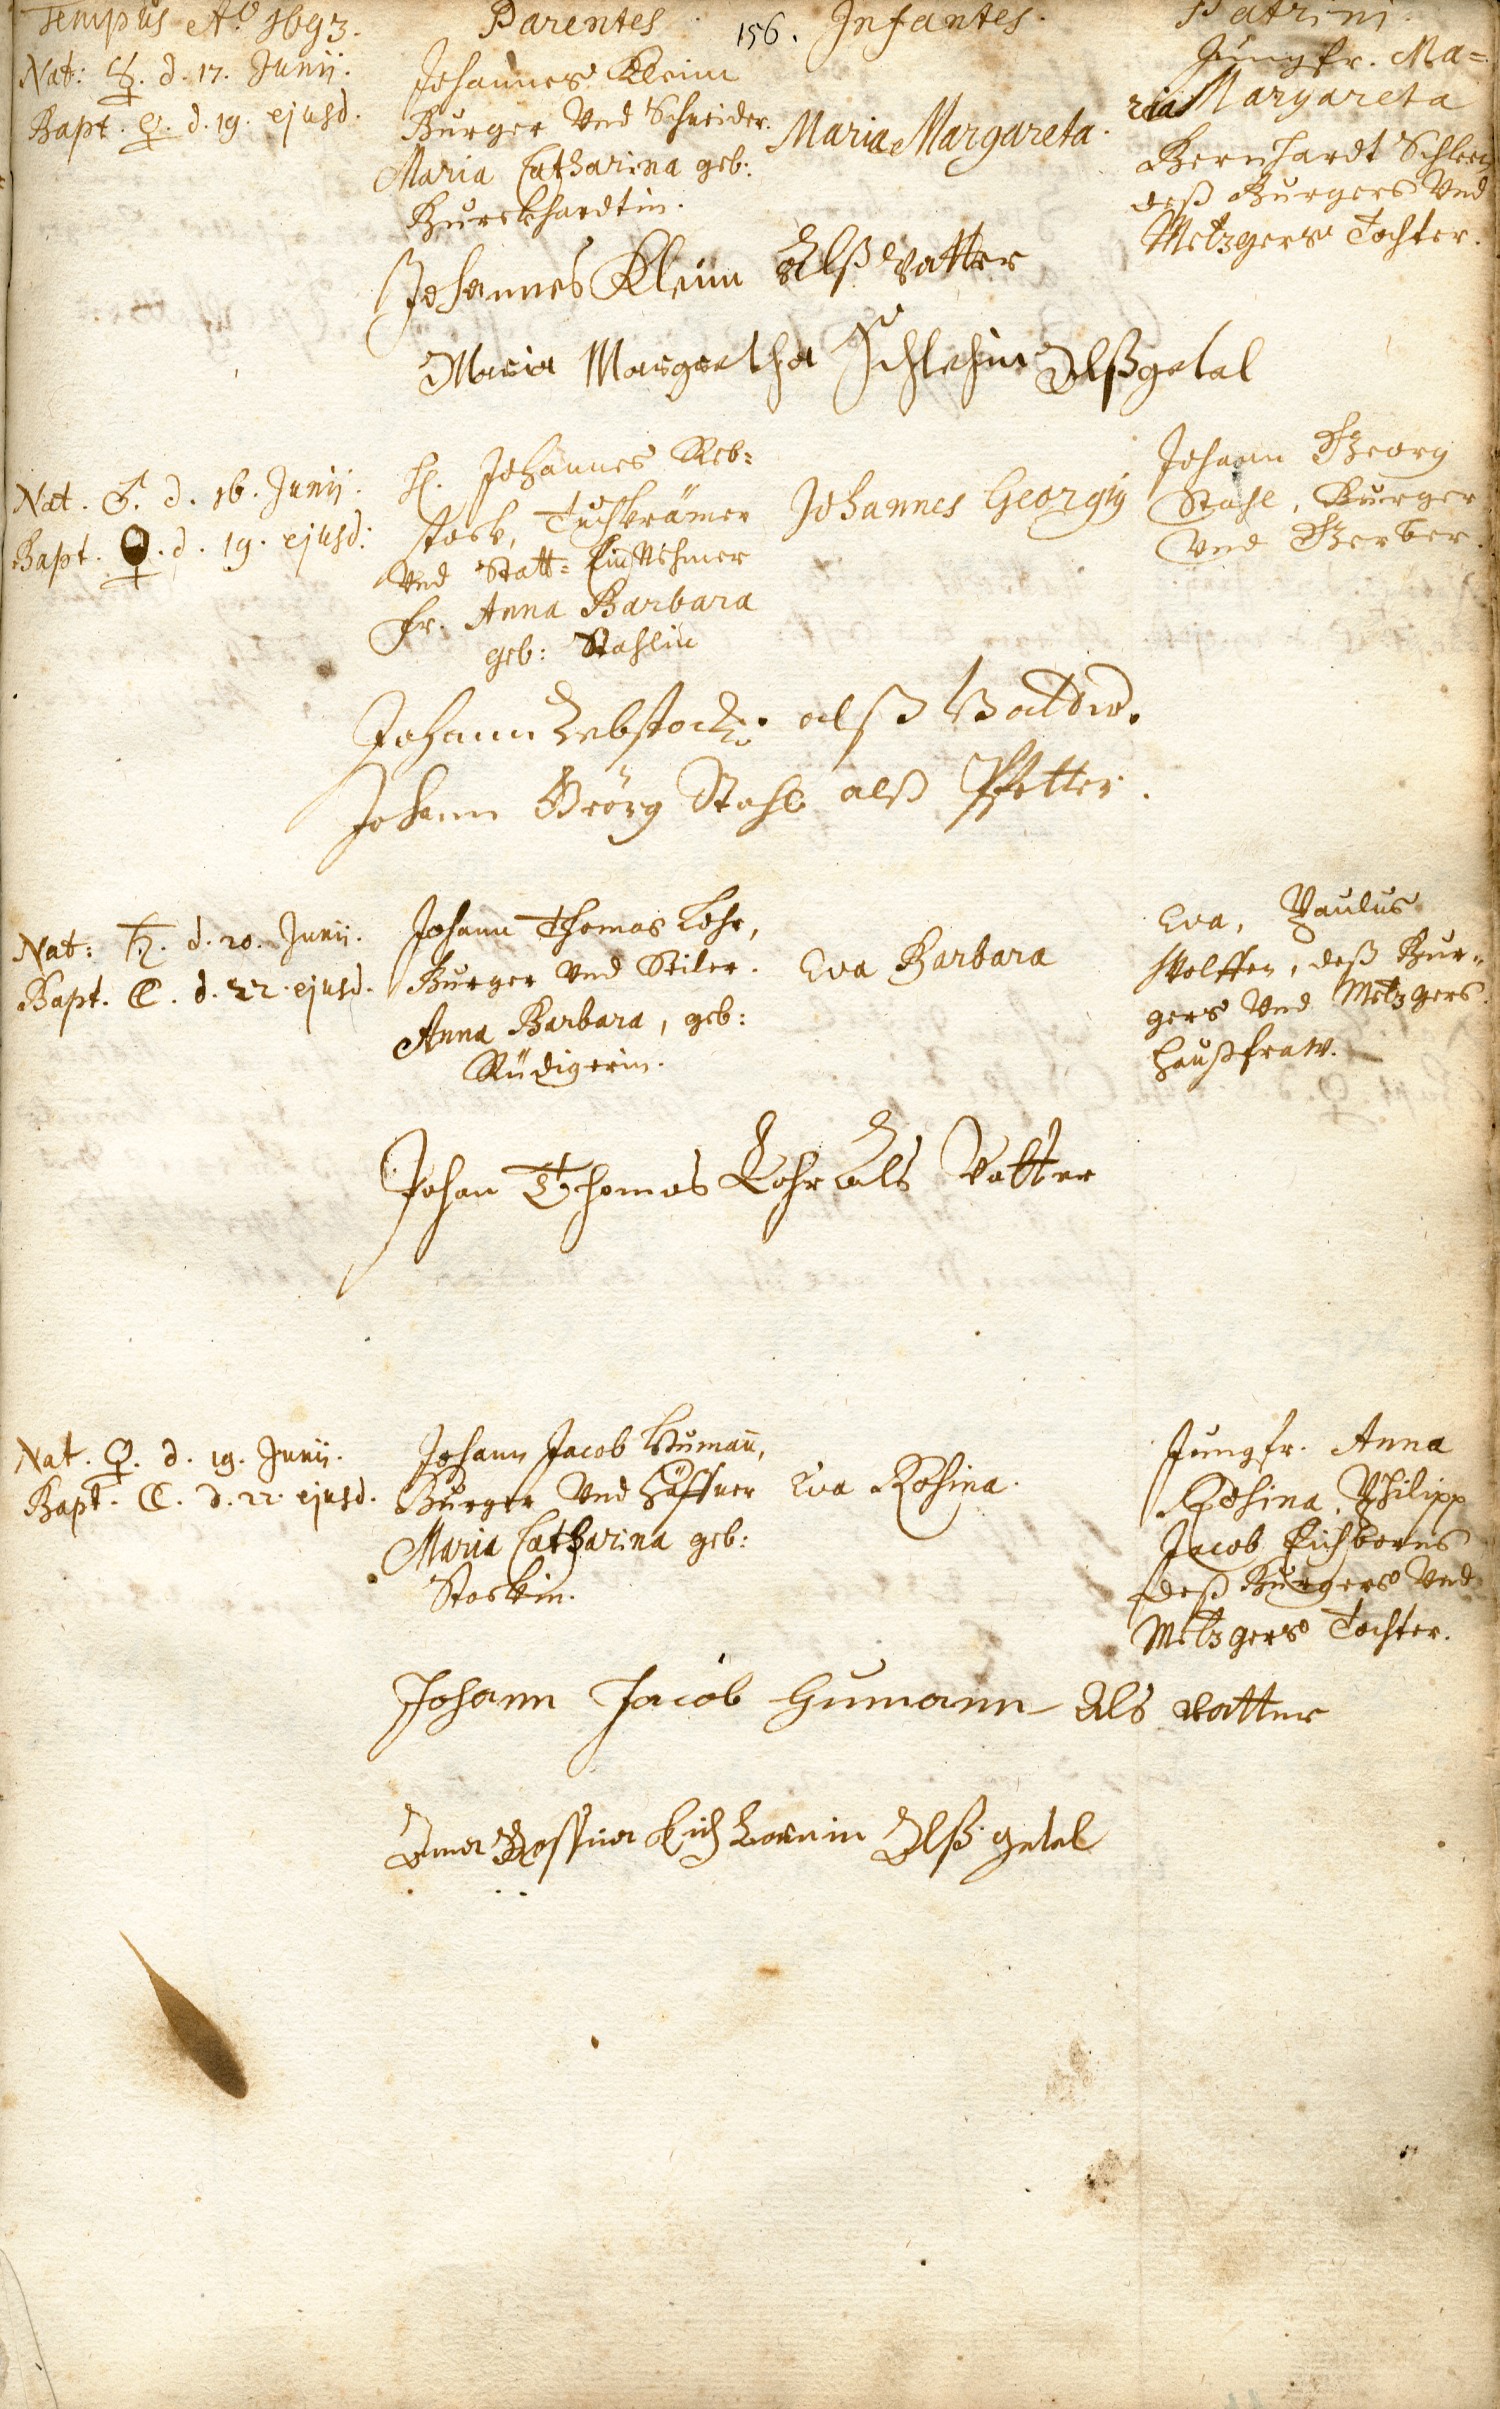 Tempus Aō 1693. Parentes 156. Infantes. Patrini.
Nat: ☿. d. 17. Junij.
Bapt. ♀. d. 19. ejusd.
Johannes Kleim
Burger Vnd Schneider.
Maria Catharina geb:
Burckhardtin.
Maria Margareta.
Jungfr. Ma=
ria Margareta
Bernhardt Schlein
deß Burgers Vnd
Metzgers Tochter.
Johannes Kleim Alß Vatter
Maria Margretha Schlehin Alß getal
Nat. ♂. d. 16. Junij.
Bapt. ♀. d. 19. ejusd:
H. Johannes Reb=
stock, Tuchkrämer
Vnd Statt= Einnehmer
Fr. Anna Barbara
geb: Stahlin
Johannes Georgig
Johann Georg
Stahl, Burger
Vnd Gerber.
Johann Rebstock: alß Vatter.
Johann Geörg Stahl alß Pfetter.
Nat: ♄. d. 20. Junij.
Bapt. ☾. d. 22. ejusd.
Johann Thomas Lohr,
Burger Vnd Seiler.
Anna Barbara, geb:
Rüdigerin.
Eva Barbara
Eva, Paulus
Wolffen, deß Bur=
gers Vnd Metzgers
Haußfraw.
Johan Thomas Lohr Als Vatter
Nat. ♀. d. 19. Junij.
Bapt. ☾. d. 22. ejusd.
Johann Jacob Humañ,
Burger Vnd Häffner
Maria Catharina geb:
Stockin.
Eva Rosina.
Jungfr. Anna
Rosina, Philipp
Jacob Eichborns
deß Burgers Vnd
Metzgers Tochter.
Johann Jacob Humann Als Vatter
Anna Rossina Eichbornin Alß getel